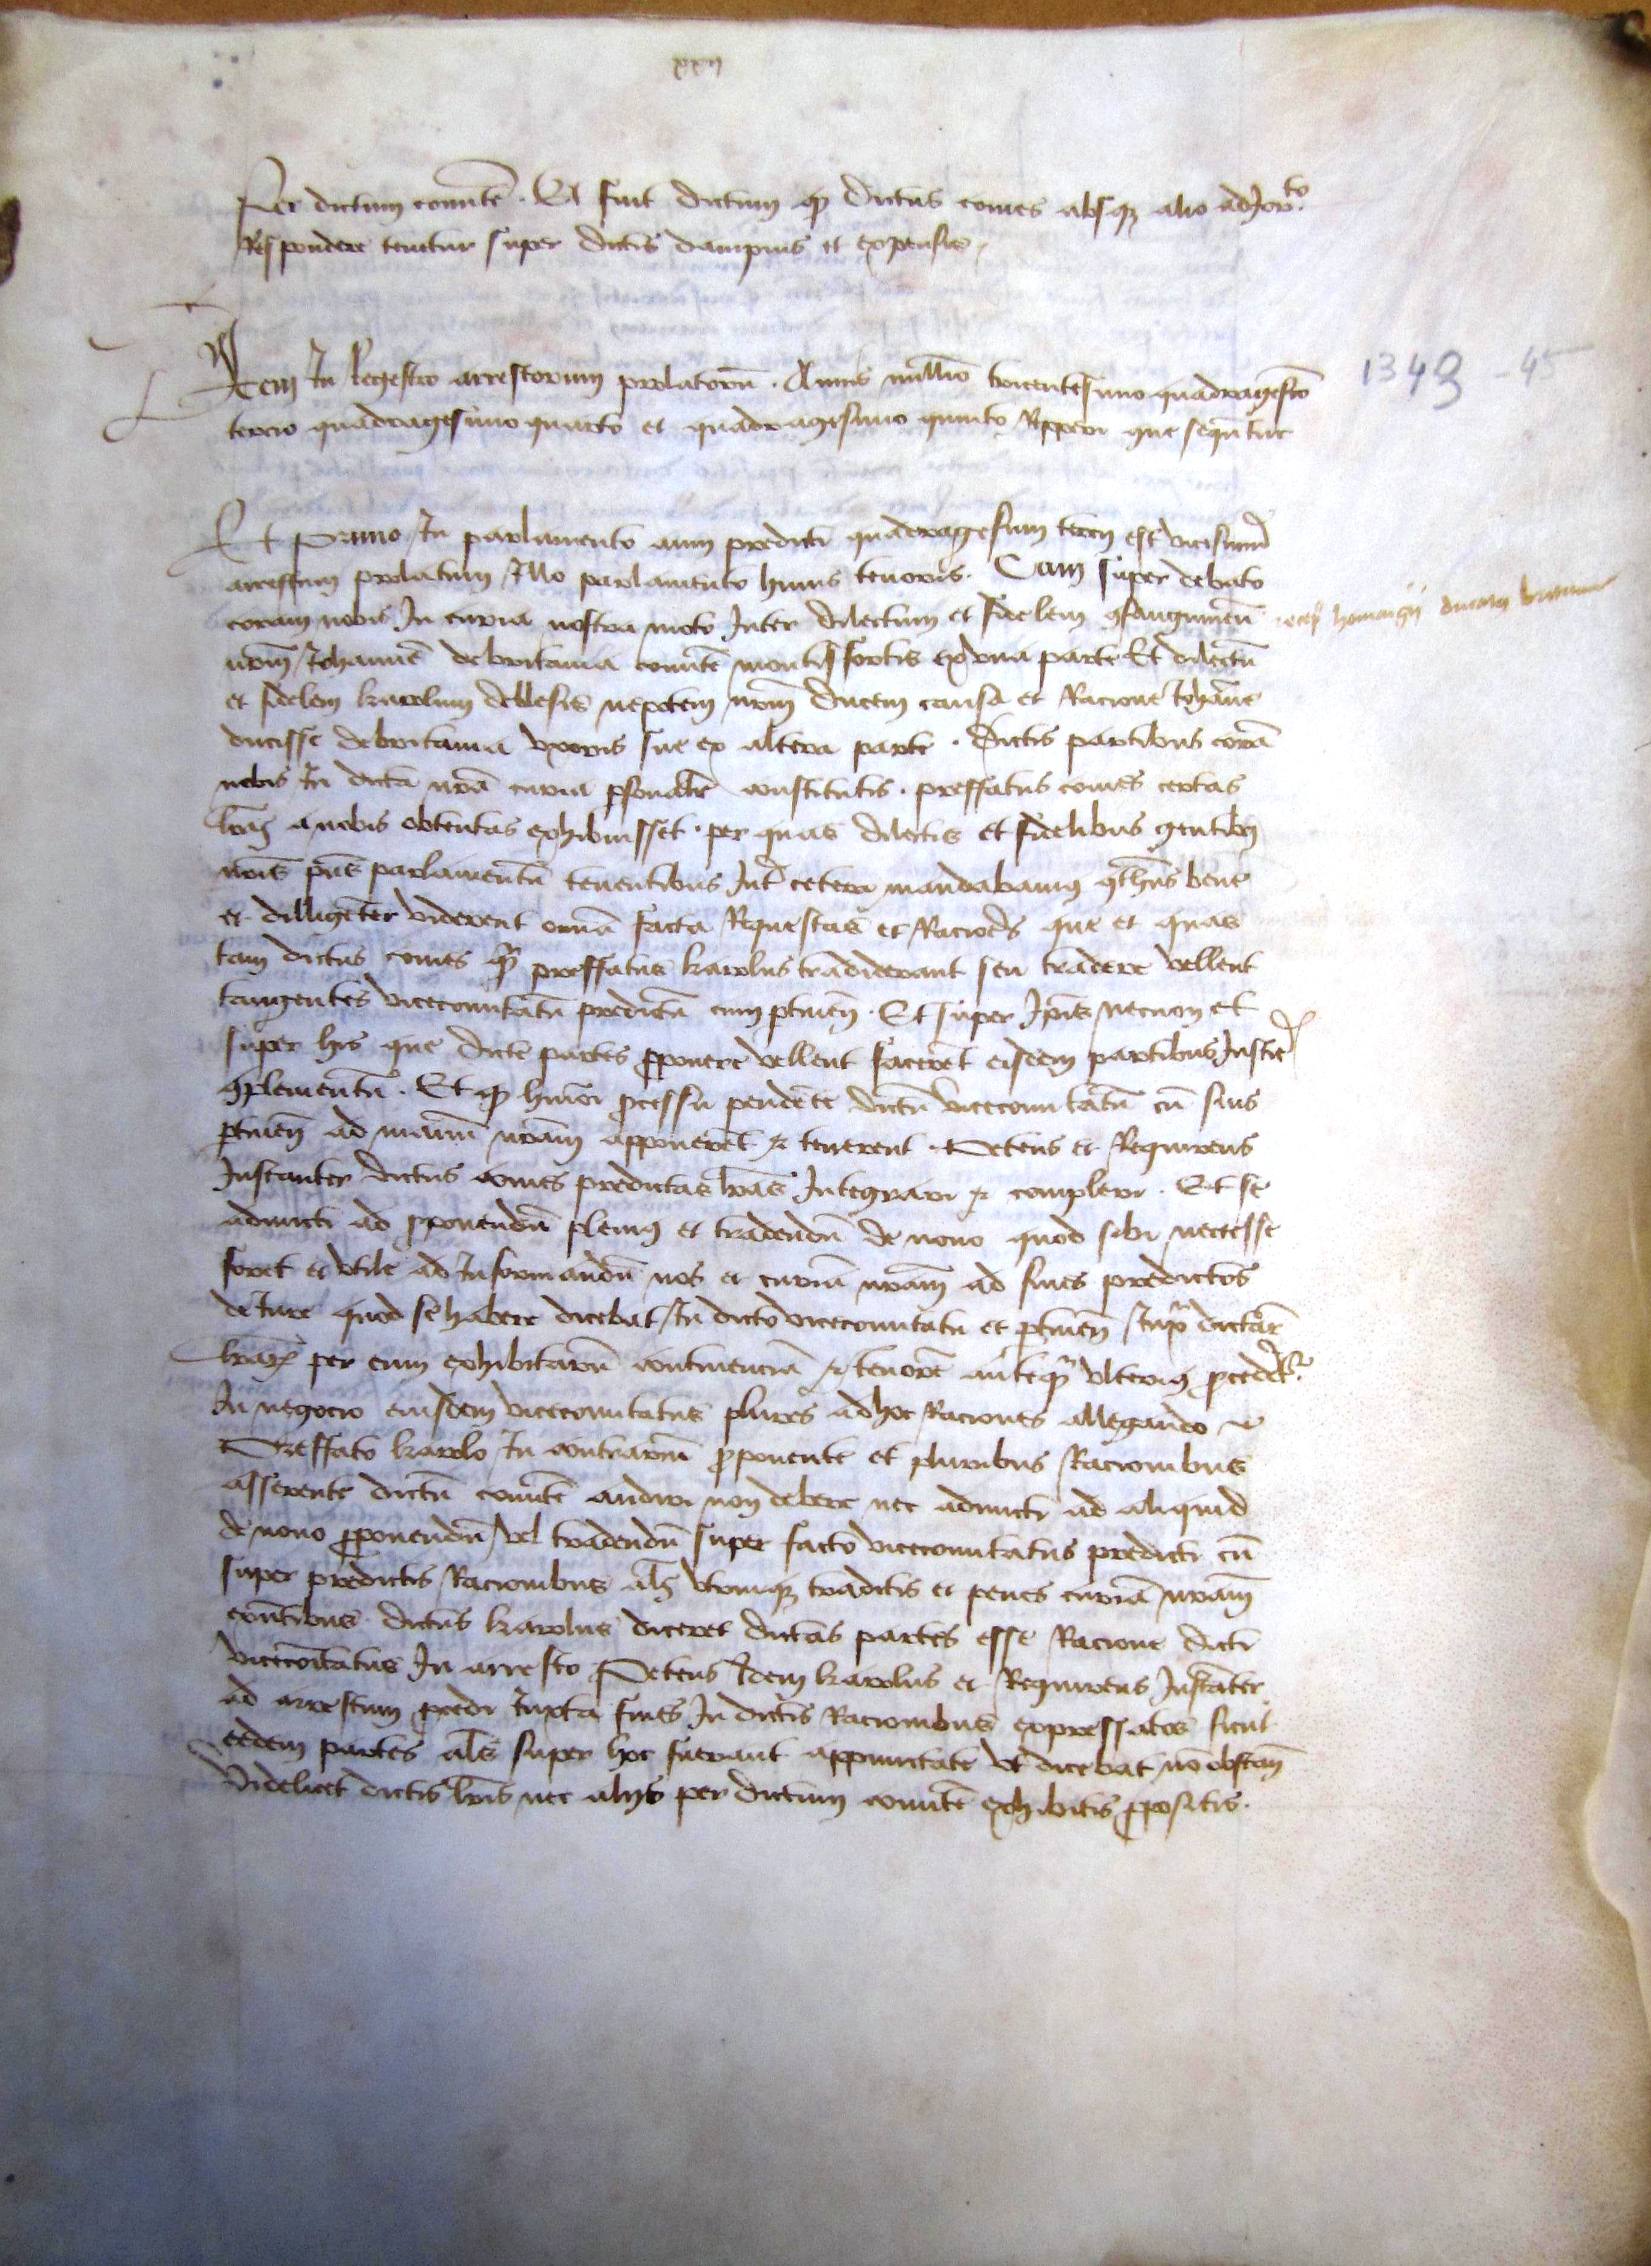 xxij
Per dictum comitē. Et fuit dictum qp dictus comes absqz alio adjor.to
Respondere tenetur super dictis dampnis et expensis.
Item In Registro arrestorum prolatorū. Annis mill̄io tricentesimo quadragesīo
tercio quadragesimo quarto et quadragesimo quinto Repperi que sequn̄tur
1343 - 45
Et primo In parlamento anni predicti quadragesimi tercij est
arrestum prolatum Illo parlamento huius tenoris. Cum super debato
coram nobis In curia nostra moto Inter dilectum et fidelem gsanguineū
nrm̄ Iohannē de britania comitē montisfortis ex una parte Et dilectū
et fidelem karolum de blesis nepotem nrm̄ ducem causa et Racione Ioh̄ane
ducisse de britania uxoris sue ex altera parte. Dictis partibus corā
nobis In dicta nrā curia psonalr̄ constitutis. preffatus comes certas
lrās a nobis obtentas exhibuisset. per quas dilectis et fidelibus gentibz
nrīs pn̄s parlamentū tenentibus Int̄ cetera mandabamus bene
et dilligenter viderent om̄ia facta Requestas et Raciōes que et quas
tam dictus comes qm̄ preffatus karolus tradiderant seu tradere vellent
tangentes vicecomitatū predictū cum ptineñ. Et super Ipīs necnon et
super his que dicte partes pponere vellent facerēt eisdem partibus Justic̄
gplementū. Et qp hm̄oi pcessu pendēte dictū vicecomitatū cū suis
ptineñ ad manū nrām apponerēt et tenerent. Petens et Requirens
Instanter dictus comes predictas lrās Integrari et compleri. Et se
admicti ad pponendū plenius et tradendū de novo quod sibi neccesse
foret et utile ad Informandū nos et curiā nrām ad fines predictos
de Iure quod se habere dicebat In dicto vicecomitatu et ptineñ Iux̄ dictar̄
lrar̄ per eum exhibitarū continenciā et tenorē anteqm̄ ulterius pcederet.
In negocio eiusdem vicecomitatus plures ad hoc Raciones allegando
Preffato karolo In contrariū pponente et pluribus Racionibus
asserente dictū comitē audiri non debere nec admicti ad aliquid
de novo pponendū vel tradendū super facto vicecomitatus predicti cū
super predictis Racionibus al̄s utrinqz traditis et penes curiā nrām
exn̄tibus dictus karolus diceret dictas partes esse Racione dicti
vicecom̄itatus In arresto Petens Idem karolus et Requirens Instāter
ad arrestum pcedi Iuxta fines In dictis Racionibus expressatos sicut
eedem partes al̄s super hoc fuerant appunctate ut dicebat nō obstañ
videlicet dictis lrīs nec aliis per dictum comitē exhibitis ppositis.